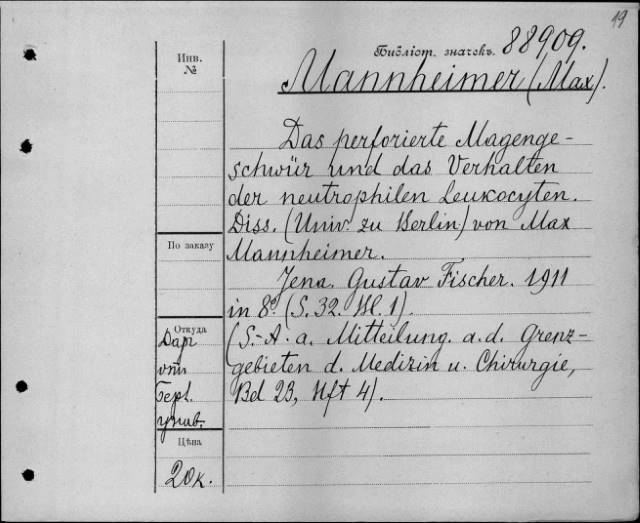 19
Инв.
№
Библіот. значекъ. 88909.
Mannheimer (Max).
Das perforierte Magenge-
schwür und das Verhalten
der neutrophilen Leukocyten.
Diss. (Univ. zu Berlin) von Max
Mannheimer.
По заказу
Jena. Gustav Fischer. 1911
in 8º (S. 32. Bl. 1).
Откуда
Даръ
отъ
Берл.
унив.
(S.-A. a. Mitteilung. a. d. Grenz-
gebieten d. Medizin u. Chirurgie,
Bd 23, Hft 4).
Цѣна
20 к.